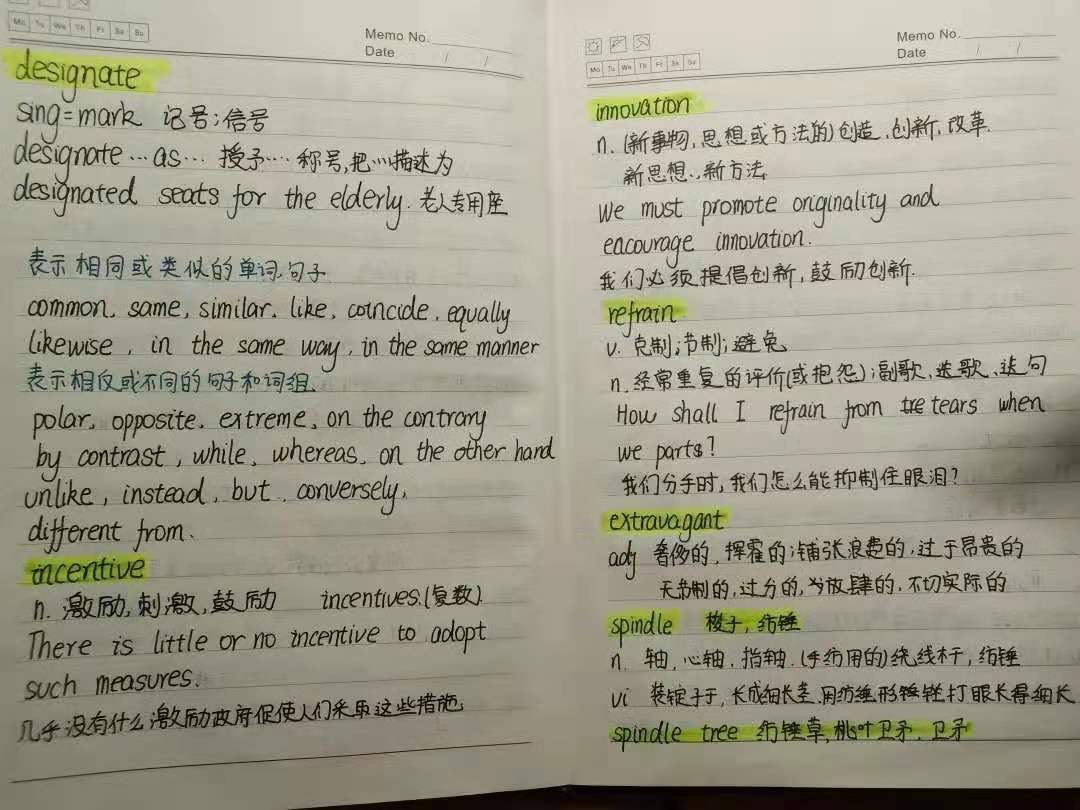 Mo Tu We Th Fr Sa Su
Memo No.
Date / /
designate
sing=mark 记号;信号
designate…as… 授予…称号,把…描述为
designated seats for the elderly. 老人专用座
表示相同或类似的单词.句子
common, same, similar, like, coincide, equally
likewise, in the same way, in the same manner
表示相反或不同的句子和词组
polar, opposite, extreme, on the contrary
by contrast, while, whereas, on the other hand
unlike, instead, but, conversely,
different from.
incentive
n. 激励,刺激,鼓励 incentives.(复数)
There is little or no incentive to adopt
such measures.
几乎没有什么激励政府促使人们采取这些措施
Mo Tu We Th Fr Sa Su
Memo No.
Date / /
innovation
n. (新事物,思想或方法的)创造,创新,改革.
新思想,新方法
We must promote originality and
eacourage innovation.
我们必须提倡创新,鼓励创新.
refrain
v. 克制;节制;避免
n. 经常重复的评价(或抱怨);副歌,迭歌、迭句
How shall I refrain from tears when
we parts?
我们分手时,我们怎么能抑制住眼泪?
extravagant
adj 奢侈的,挥霍的;铺张浪费的;过于昂贵的
无节制的,过分的,放肆的,不切实际的
spindle 梭子,纺锤
n. 轴,心轴,指轴.(手纺用的)绕线杆,纺锤
vi 装锭子于,长成细长茎,用纺锤形锤锉打眼长得细长
spindle tree 纺锤草,桃叶卫矛,卫矛